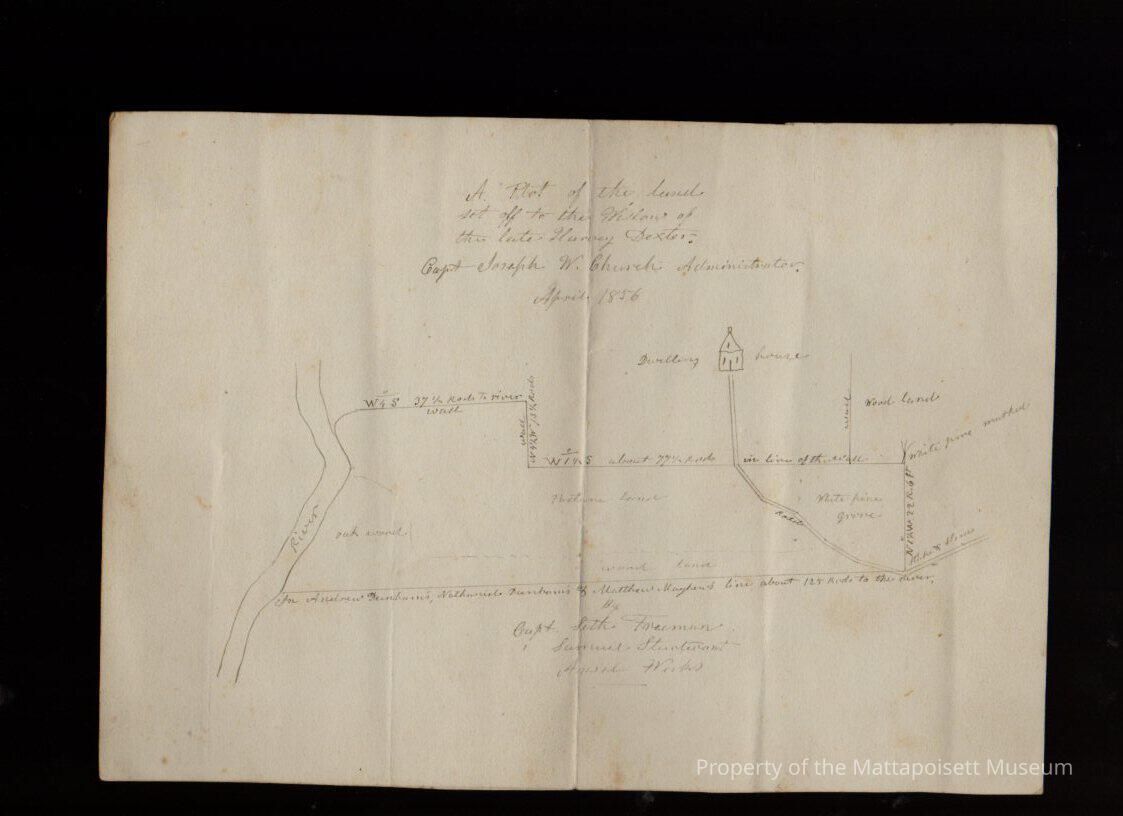 A Plot of the land
set off to the Widow of
the late Harvey Dexter
Capt Joseph W. Church Administrator
April 1856
Dwelling house
W 4 S 37 ½ Rods to river
wall
wall
Rods
wall
Wood land
White pine marked
about 77 ½ Rods
in line of the Wall
Pasture land
White pine
Grove
Road
N 12 W 22 R. 6 ft
Stake & Stones
River
oak wood
wood land
In Andrew Dunham's, Nathaniel Dunham's & Matthew Mayhew's line about 125 Rods to the river,
By
Capt. Seth Freeman
Samuel Sturtevant
Property of the Mattapoisett Museum